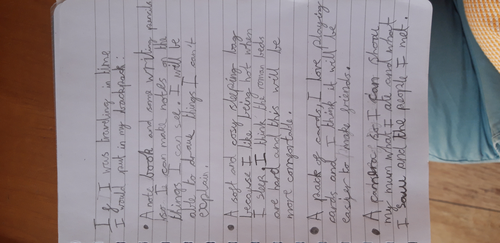 If I was traveling in time
I would put in my backpack:
• A note book and some writing pencils
so I can make notes of the
things I can see. I will be
able to draw things I can t
explain.
• A soft and cosy sleeping bag
because I like being hot when
I sleep, I think the roman beds
are hard and this will be
more comfortable.
• A pack of cards, I love playing
cards and I think it will be
easier to make friends.
• A camera so I can show
my mum what I ate and what
I saw and the people I met.